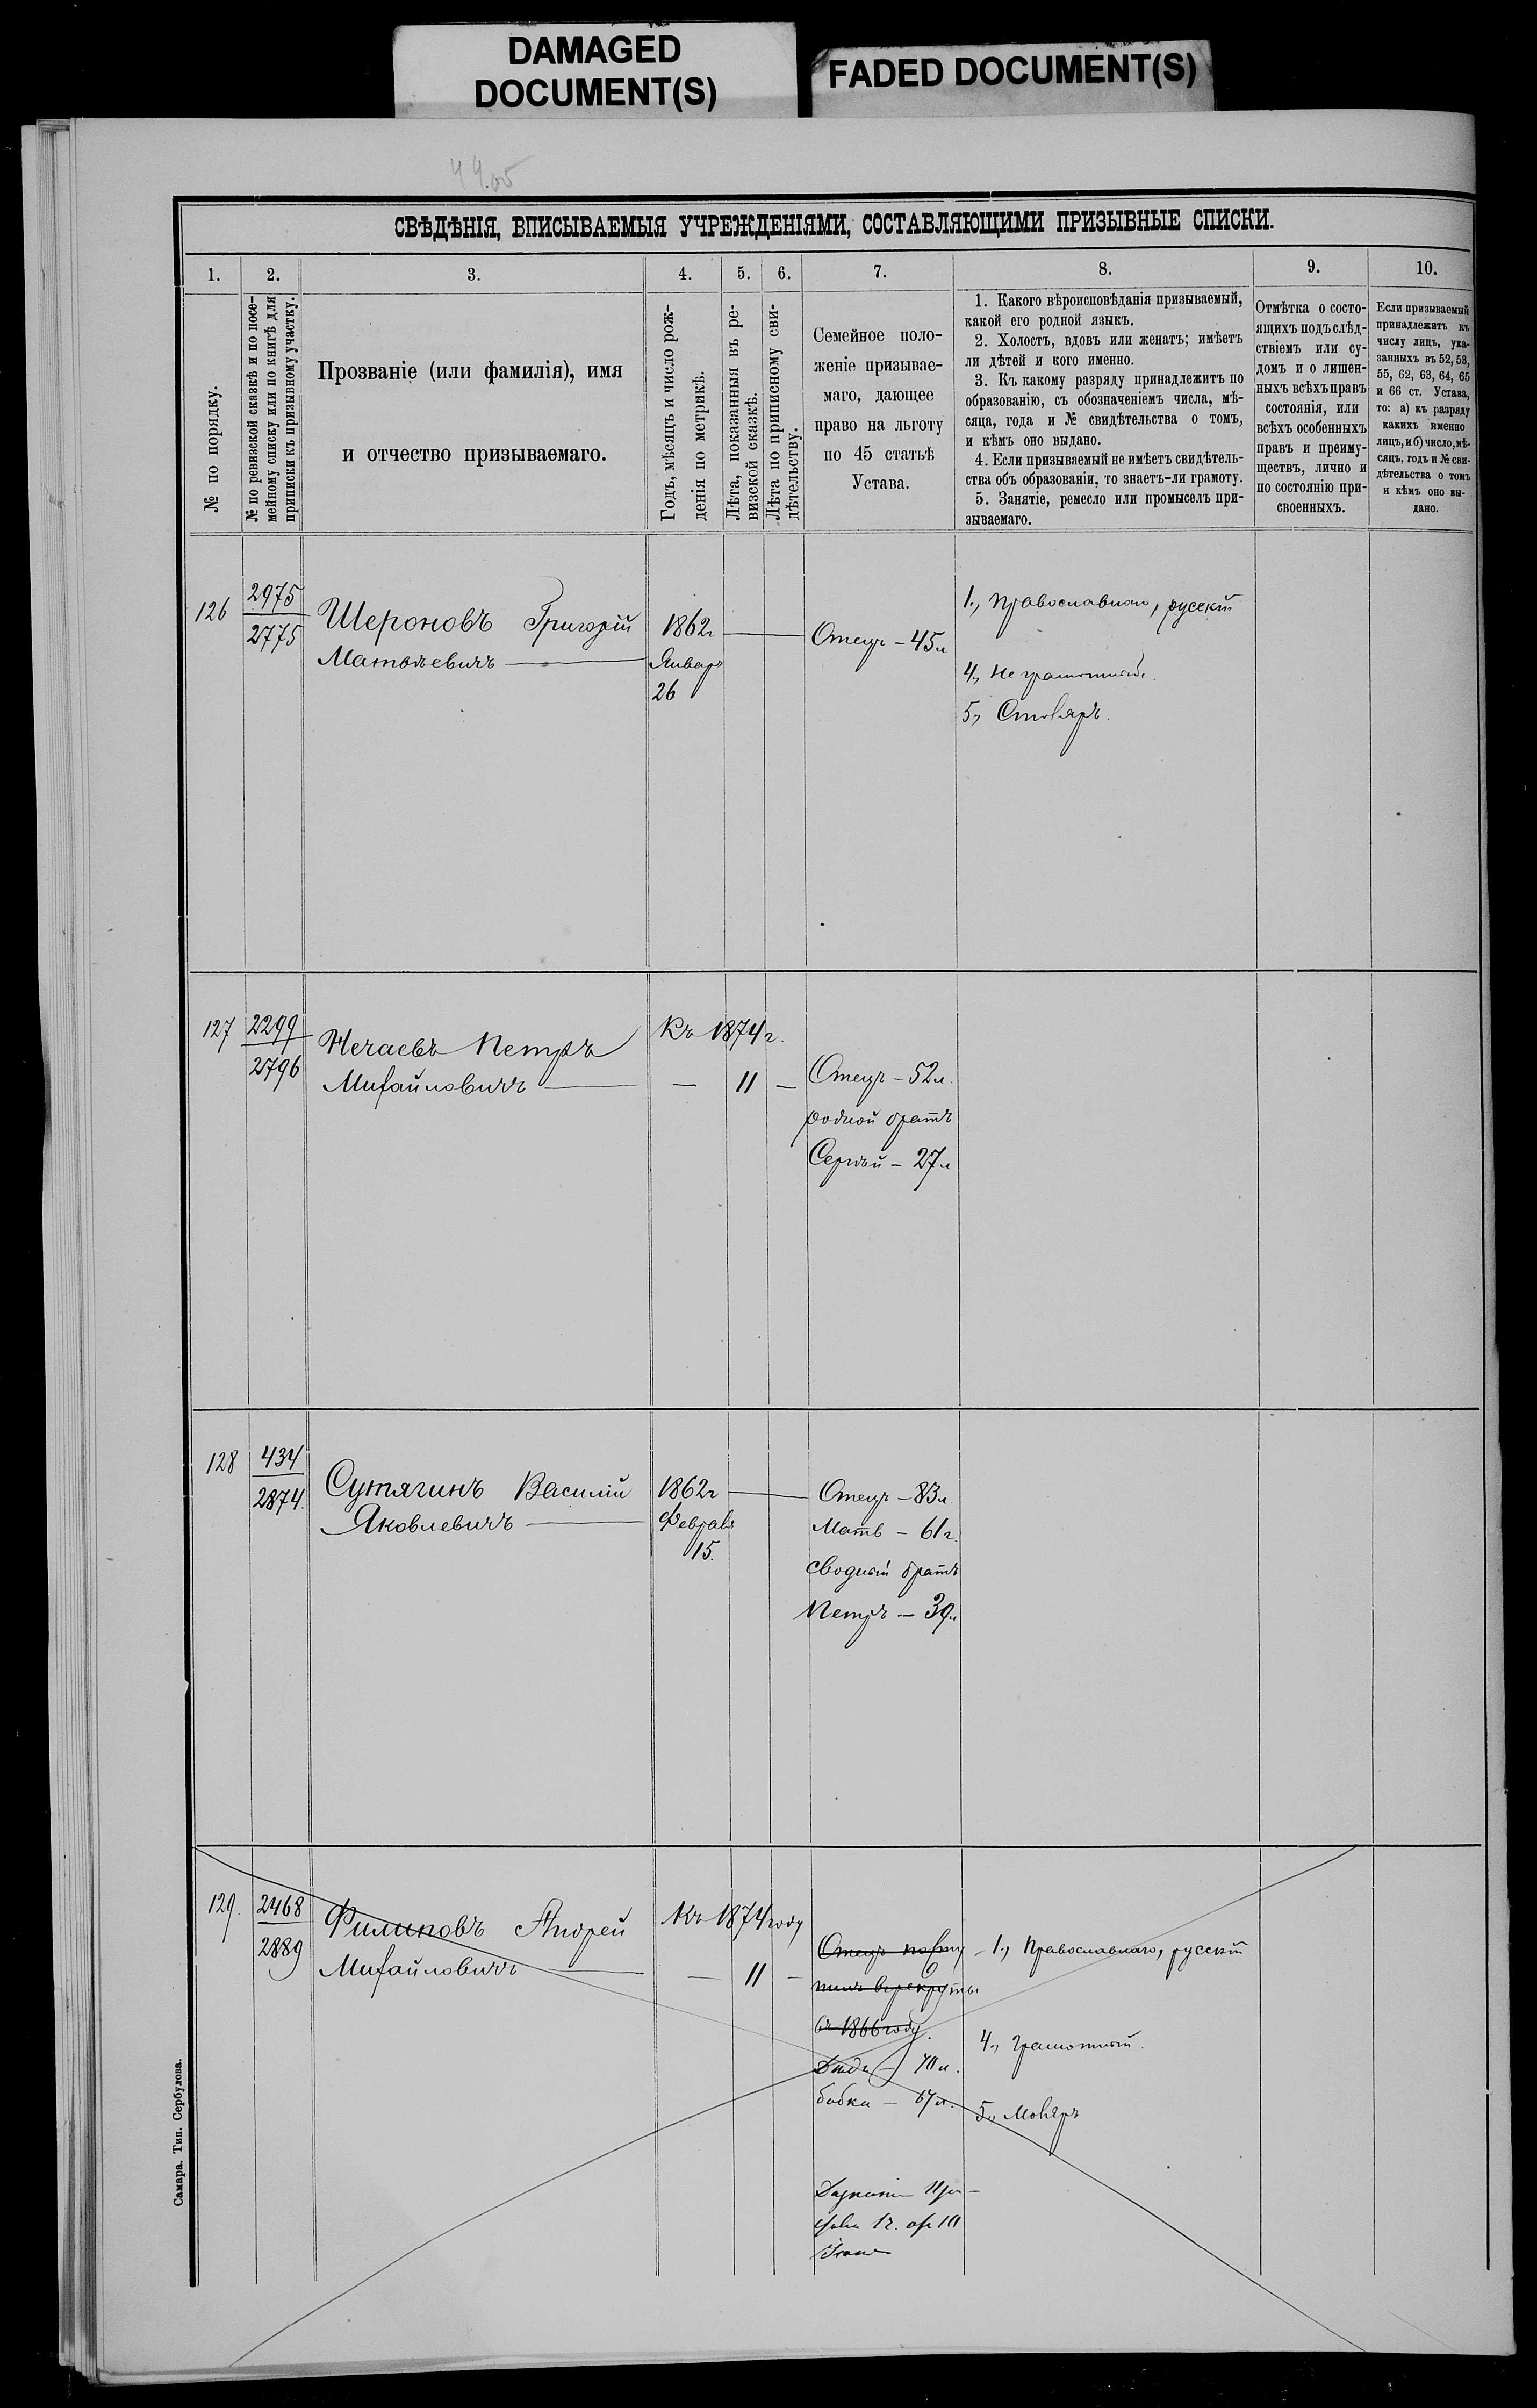 DAMAGED
DOCUMENT(S)
FADED DOCUMENT(S)
СВѢДѢНІЯ, ВПИСЫВАЕМЫЯ УЧРЕЖДЕНІЯМИ, СОСТАВЛЯЮЩИМИ ПРИЗЫВНЫЕ СПИСКИ.
1.
2.
3.
4.
5.
6.
7.
8.
9.
10.
№ по порядку.
№ по ревизской сказкѣ и по посе-
мейному списку или по книгѣ для
приписки къ призывному участку.
Прозваніе (или фамилія), имя
и отчество призываемаго.
Годъ, мѣсяцъ и число рож-
денія по метрикѣ.
Лѣта, показанныя въ ре-
визской сказкѣ.
Лѣта по приписному сви-
дѣтельству.
Семейное поло-
женіе призывае-
маго, дающее
право на льготу
по 45 статьѣ
Устава.
1. Какого вѣроисповѣданія призываемый,
какой его родной языкъ.
2. Холостъ, вдовъ или женатъ; имѣетъ
ли дѣтей и кого именно.
3. Къ какому разряду принадлежитъ по
образованію, съ обозначеніемъ числа, мѣ-
сяца, года и № свидѣтельства о томъ,
и кѣмъ оно выдано.
4. Если призываемый не имѣетъ свидѣтель-
ства объ образованіи, то знаетъ-ли грамоту.
5. Занятіе, ремесло или промыселъ при-
зываемаго.
Отмѣтка о состо-
ящихъ подъ слѣд-
ствіемъ или су-
домъ и о лишен-
ныхъ всѣхъ правъ
состоянія, или
всѣхъ особенныхъ
правъ и преиму-
ществъ, лично и
по состоянію при-
своенныхъ.
Если призываемый
принадлежитъ къ
числу лицъ, ука-
занныхъ въ 52, 53,
55, 62, 63, 64, 65
и 66 ст. Устава,
то: а) къ разряду
какихъ именно
лицъ, и б) число, мѣ-
сяцъ, годъ и № сви-
дѣтельства о томъ
и кѣмъ оно вы-
дано.
126
2975
2775
Шероновъ Григорій
Матвѣевичъ —
1862г
Январ
26
Отецъ - 45л
1., Православнаго, русскій
4., Неграмотный.
5., Столяръ.
127
2299
2796
Нечаевъ Петръ
Михайловичъ —
Къ 1874г.
— 11 —
Отецъ - 52л.
родной братъ
Сергѣй - 27л
128
434
2874.
Сутягинъ Василій
Яковлевичъ —
1862г
Февраля
15.
Отецъ - 83л.
Мать - 61г.
сводный братъ
Петръ - 39л
129.
2468
2889
Филиповъ Андрей
Михайловичъ —
Къ 1874 году
— 11 —
Отецъ посту
пилъ в рекруты
въ 1866 году.
Дѣдъ - 70л.
бабка - 67л.
1., Православнаго, русскій
4., Грамотный.
5., Маляръ
Самара. Тип. Сербулова.